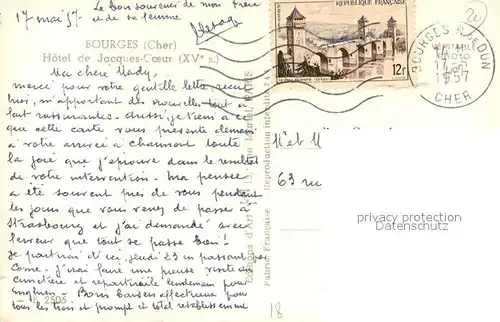 17 mai 57
Le bon souvenir de mon frère
et de sa femme
BOURGES (Cher)
Hôtel de Jacques-Cœur (XVe s.)
RÉPUBLIQUE FRANÇAISE
12f
BOURGES R. DE DUN
17-5
1957
CHER
20
Ma chère Mady,
merci pour votre gentille lettre, reçue
hier, m'apportant des nouvelles tout à
fait rassurantes. Aussi, je tiens à ce
que cette carte vous présente demain
à votre arrivée à Chaumont toute
la joie que j'éprouve dans le résultat
de votre intervention. Ma pensée
a été souvent près de vous pendant
les jours que vous venez de passer à
Strasbourg et j'ai demandé avec
ferveur que tout se passe bien!
Je partirai d'ici, jeudi 23 en passant par
Cosne. J'irai faire une pieuse visite au
cimetière et repartirai lendemain pour
Enghien. Bons baisers affectueux pour
tous les trois et prompt et total rétablissement
2505
Fabric. Française - Reproduction interdite
PARIS
Mr et M
63 ru
18
privacy protection
Datenschutz